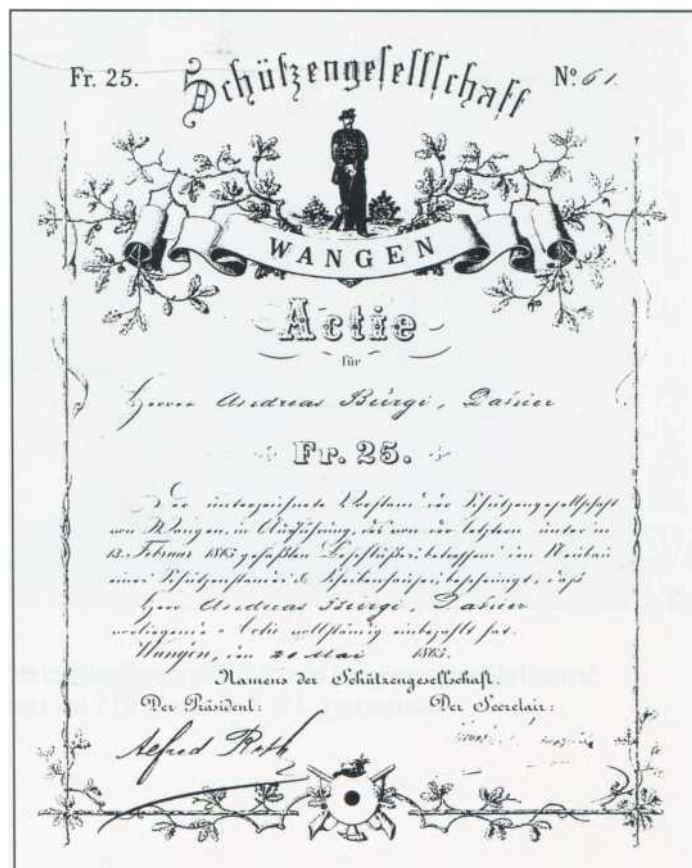 Fr. 25.
Schützengesellschaft
No. 61.
WANGEN
Actie
für
Herrn Andreas Bürgi,
Fr. 25.
Der unterzeichnete Vorstand der Schützengesellschaft
von Wangen, in Ausführung des von der letztern unterm
13. Februar 1865 gefaßten Beschlußes betreffend den Neubau
eines Schützenstandes & Scheibenhauses bescheinigt, daß
Herr Andreas Bürgi,
vorliegende Actie vollständig einbezahlt hat.
Wangen, den 20 Mai 1865.
Namens der Schützengesellschaft.
Der Präsident:
Der Secretair:
Alfred Roth